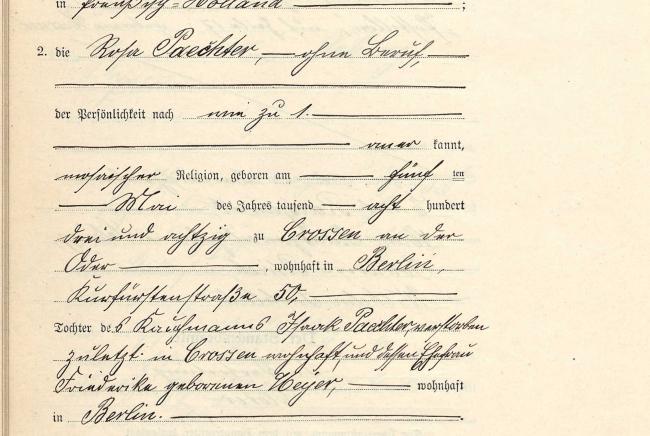 in Preußisch=Holland ;
2. die Rosa Paechter, ohne Beruf,
der Persönlichkeit nach wie zu 1.
aner kannt,
mosaischer Religion, geboren am fünf ten
Mai des Jahres tausend acht hundert
drei und achtzig zu Crossen an der
Oder , wohnhaft in Berlin,
Kurfürstenstraße 50,
Tochter des Kaufmanns Isaak Paechter, verstorben
zuletzt in Crossen wohnhaft, und dessen Ehefrau
Friederike geborenen Heyer, wohnhaft
in Berlin.